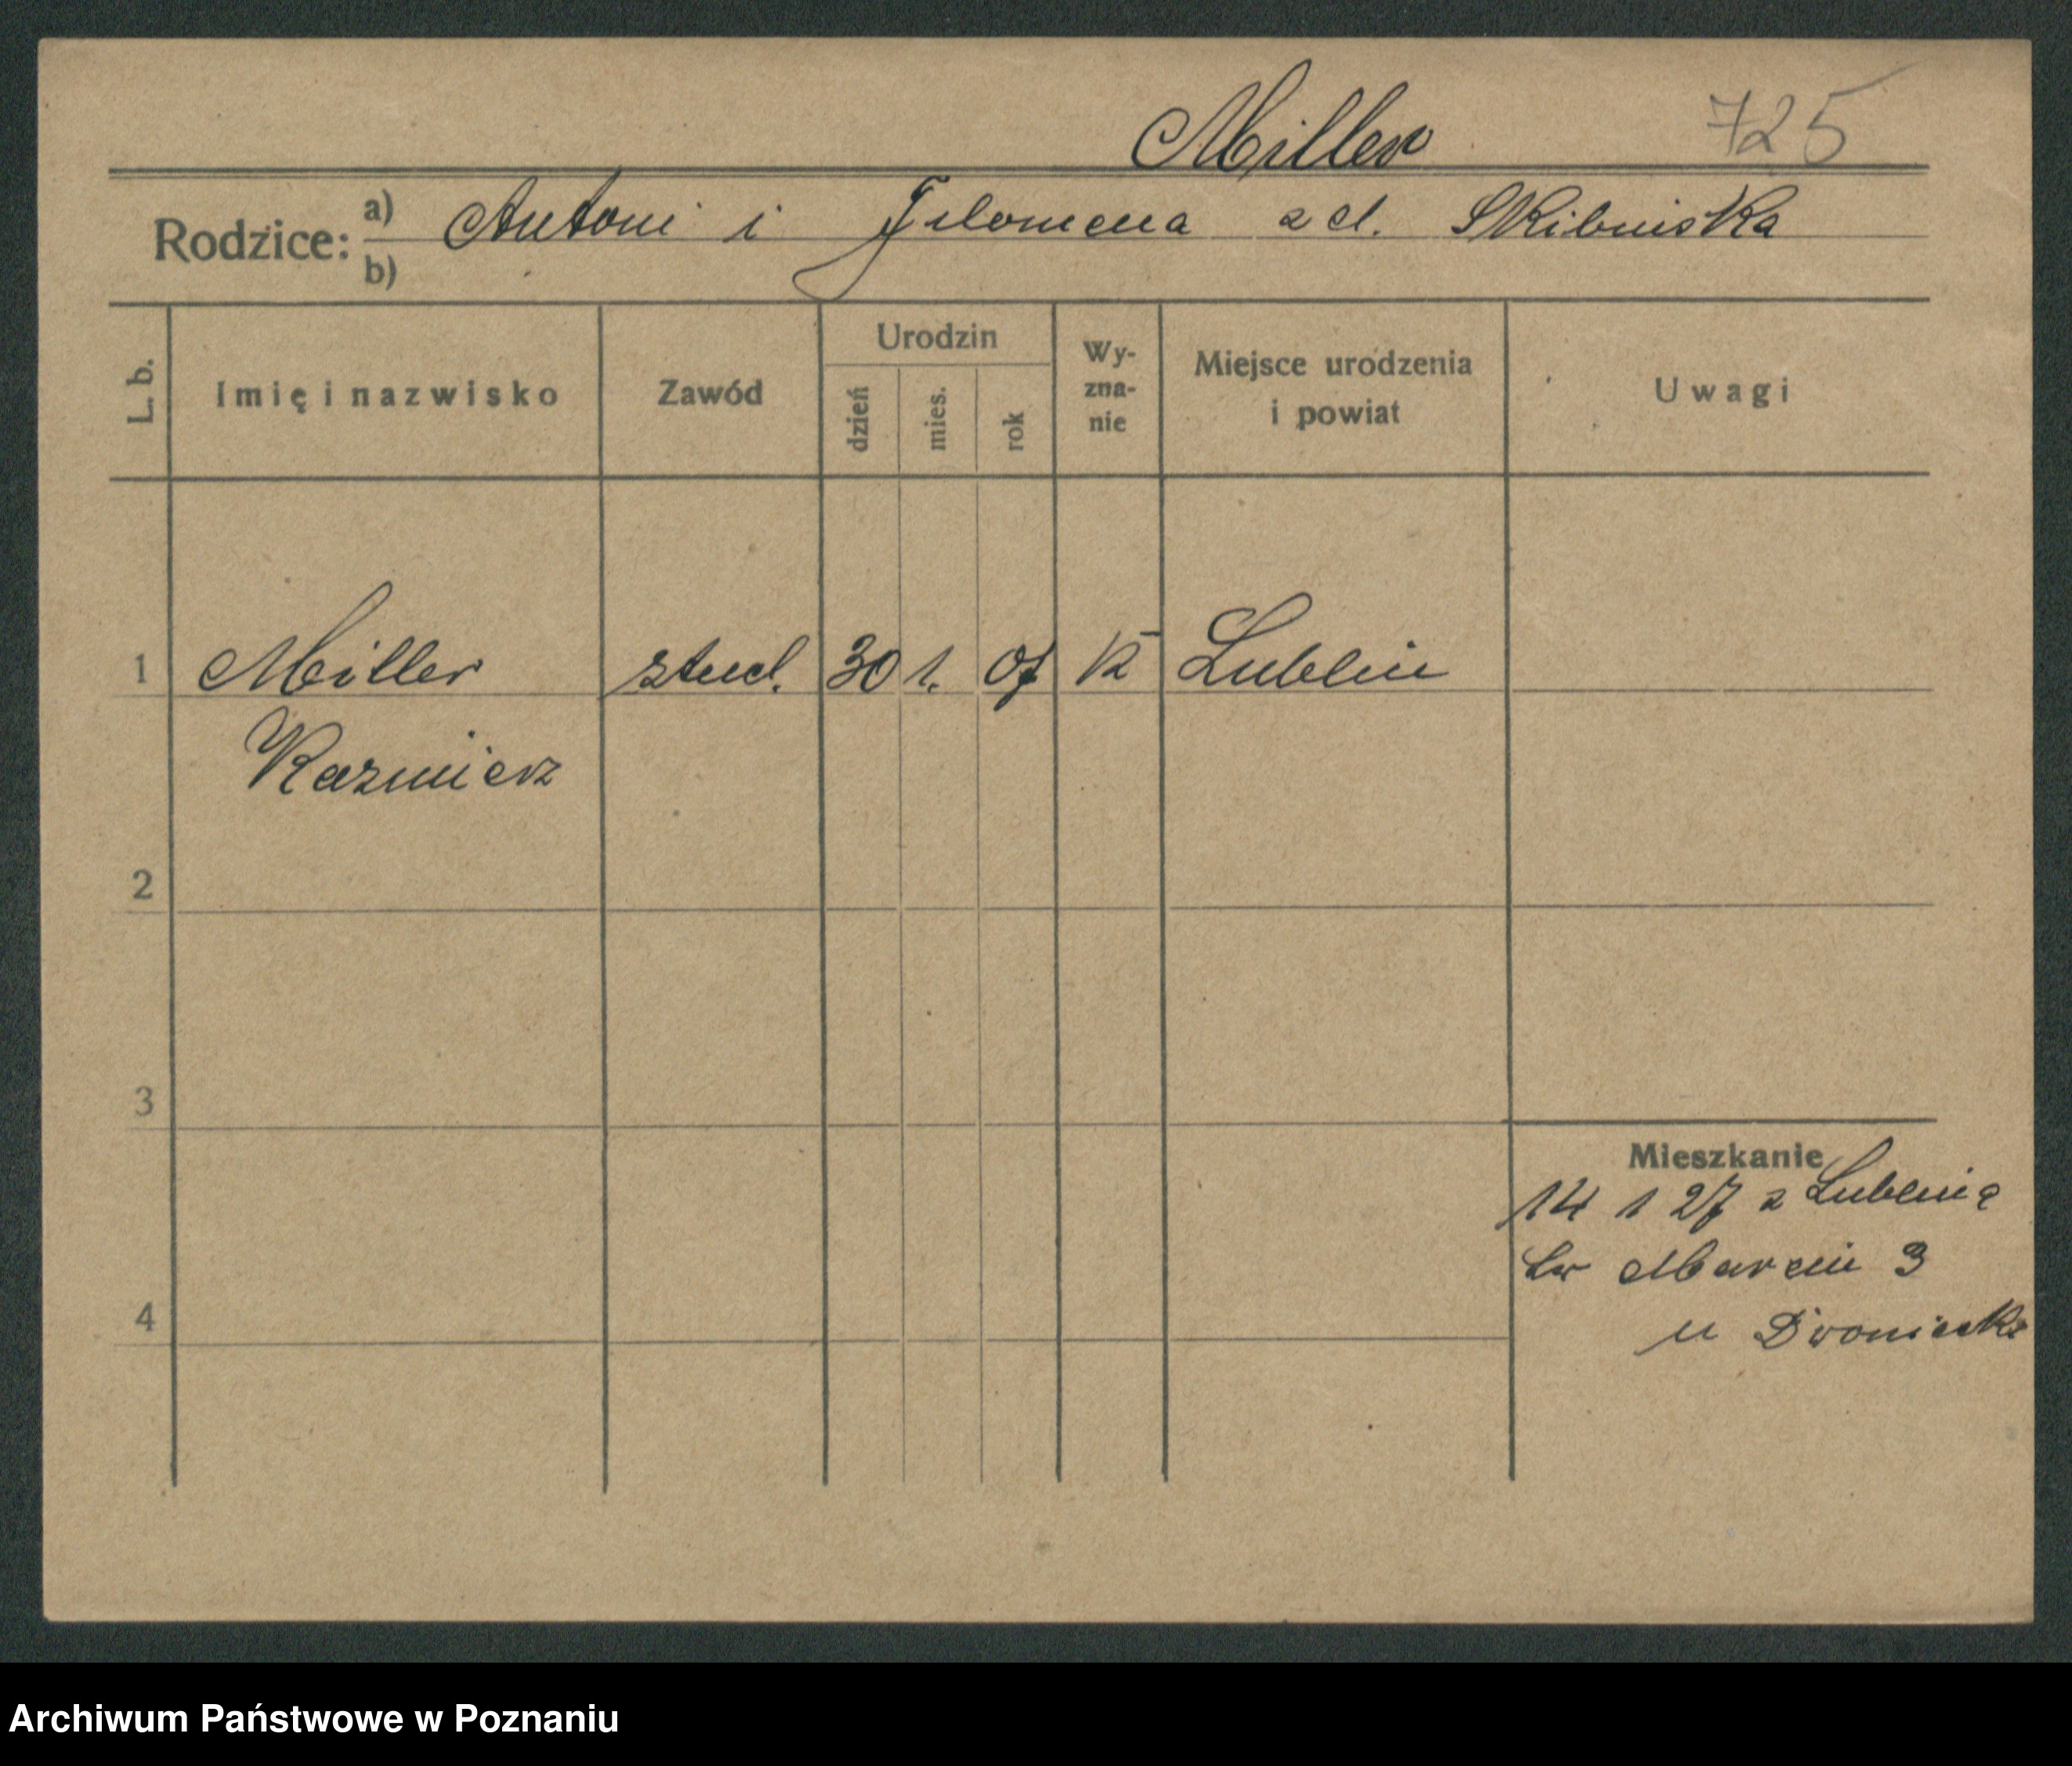 Miller 725
Rodzice: a) Antoni i Filomena z d. Skibniska
b)
L. b. Imię i nazwisko Zawód Urodzin dzień mies. rok Wy-zna-nie Miejsce urodzenia i powiat Uwagi
1 Miller stud. 30 1. 07 K Lublin
Kazmierz
2
3
Mieszkanie
14 1 27 z Lublina
św Marcin 3
4
u
Archiwum Państwowe w Poznaniu